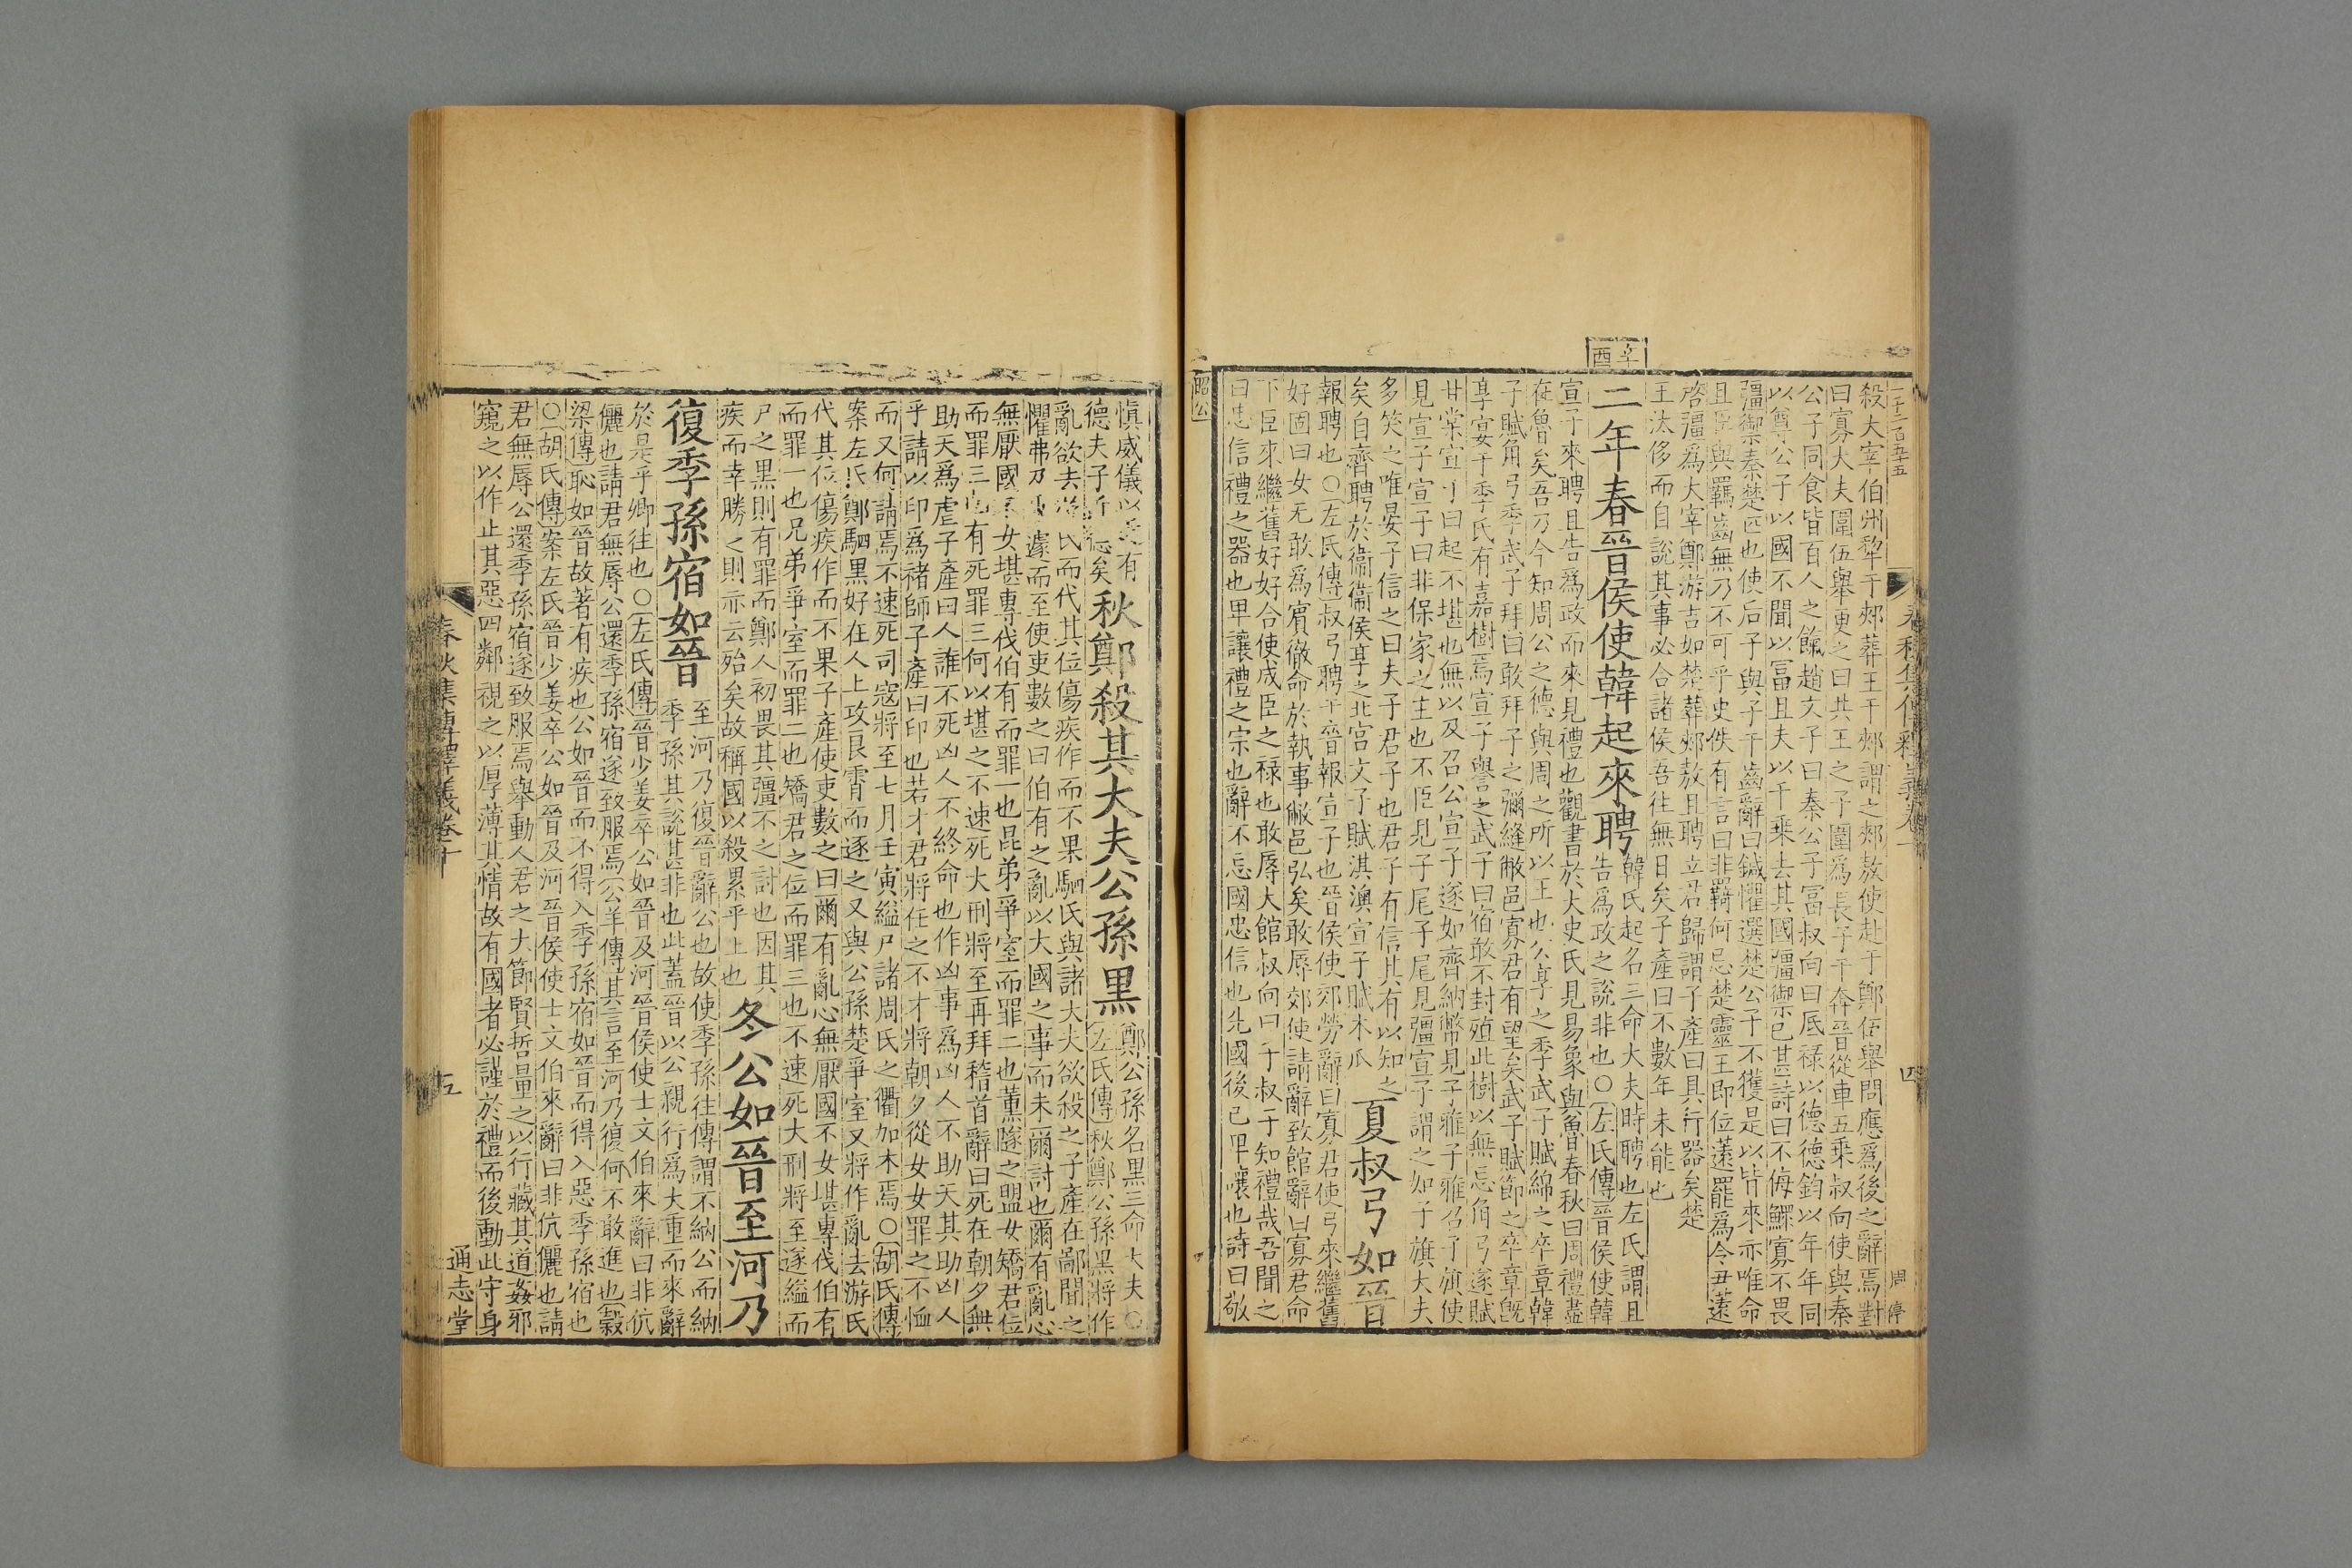 殺大宰伯州犂于郟葬王于郟謂之郟敖使赴于鄭伍舉問應爲後之辭焉對
曰寡大夫圍伍舉更之曰共王之子圍爲長子干奔晉從車五乘叔向使與秦
公子同食皆百人之餼趙文子曰秦公子富叔向曰厎禄以德德鈞以年年同
以尊公子以國不聞以富且夫以千乘去其國彊禦已甚詩曰不侮鰥寡不畏
彊禦秦楚匹也使后子與子干齒辭曰鍼懼選楚公子不獲是以皆來亦唯命
且臣與羈齒無乃不可乎史佚有言曰非羇何忌楚靈王即位薳罷爲令尹薳
啓彊爲大宰鄭游吉如楚葬郟敖且聘立君歸謂子產曰具行器矣楚
王汰侈而自說其事必合諸侯吾往無日矣子產曰不數年未能也
辛酉
二年春晉侯使韓起來聘
韓氏起名三命大夫時聘也左氏謂且
告爲政之說非也○左氏傳晉侯使韓
宣子來聘且告爲政而來見禮也觀書於大史氏見易象與魯春秋曰周禮盡
在魯矣吾乃今知周公之德與周之所以王也公享之季武子賦緜之卒章韓
子賦角弓季武子拜曰敢拜子之彌縫敝邑寡君有望矣武子賦節之卒章旣
享宴于季氏有嘉樹焉宣子譽之武子曰宿敢不封殖此樹以無忘角弓遂賦
甘棠宣子曰起不堪也無以及召公宣子遂如齊納幣見子雅子雅召子旗使
見宣子宣子曰非保家之主也不臣見子尾子尾見彊宣子謂之如子旗大夫
多笑之唯晏子信之曰夫子君子也君子有信其有以知之
矣自齊聘於衞衞侯享之北宮文子賦淇澳宣子賦木瓜
夏叔弓如晉
報聘也○左氏傳叔弓聘于晉報宣子也晉侯使郊勞辭曰寡君使弓來繼舊
好固曰女无敢爲賓徹命於執事敝邑弘矣敢辱郊使請辭致館辭曰寡君命
下臣來繼舊好好合使成臣之祿也敢辱大館叔向曰子叔子知禮哉吾聞之
曰忠信禮之器也卑讓禮之宗也辭不忘國忠信也先國後己卑讓也詩曰敬
昭公
慎威儀以近有
德夫子近德矣
秋鄭殺其大夫公孫黑
鄭公孫名黑三命大夫○
左氏傳秋鄭公孫黑將作
亂欲去游氏而代其位傷疾作而不果駟氏與諸大夫欲殺之子產在鄙聞之
懼弗及乘遽而至使吏數之曰伯有之亂以大國之事而未爾討也爾有亂心
無厭國不女堪專伐伯有而罪一也昆弟爭室而罪二也薰隧之盟女矯君位
而罪三也有死罪三何以堪之不速死大刑將至再拜稽首辭曰死在朝夕無
助天爲虐子產曰人誰不死凶人不終命也作凶事爲凶人不助天其助凶人
乎請以印爲褚師子產曰印也若才君將任之不才將朝夕從女女罪之不恤
而又何請焉不速死司寇將至七月壬寅縊尸諸周氏之衢加木焉○胡氏傳
案左氏鄭駟黑好在人上攻良霄而逐之又與公孫楚爭室又將作亂去游氏
代其位傷疾作而不果子產使吏數之曰爾有亂心無厭國不女堪專伐伯有
而罪一也兄弟爭室而罪二也矯君之位而罪三也不速死大刑將至遂縊而
尸之黑則有罪而鄭人初畏其彊不之討也因其
疾而幸勝之則亦云殆矣故稱國以殺累乎上也
冬公如晉至河乃
復季孫宿如晉
至河乃復晉辭公也故使季孫往傳謂不納公而納
季孫其說甚非也此蓋晉以公親行爲大重而來辭
於是乎卿往也○左氏傳晉少姜卒公如晉及河晉侯使士文伯來辭曰非伉
儷也請君無辱公還季孫宿遂致服焉公羊傳其言至河乃復何不敢進也穀
梁傳恥如晉故著有疾也公如晉而不得入季孫宿如晉而得入惡季孫宿也
○胡氏傳案左氏晉少姜卒公如晉及河晉侯使士文伯來辭曰非伉儷也請
君無辱公還季孫宿遂致服焉舉動人君之大節賢哲量之以行藏其道姦邪
窺之以作止其惡四鄰視之以厚薄其情故有國者必謹於禮而後動此守身
春秋集傳釋義卷十
五
通志堂